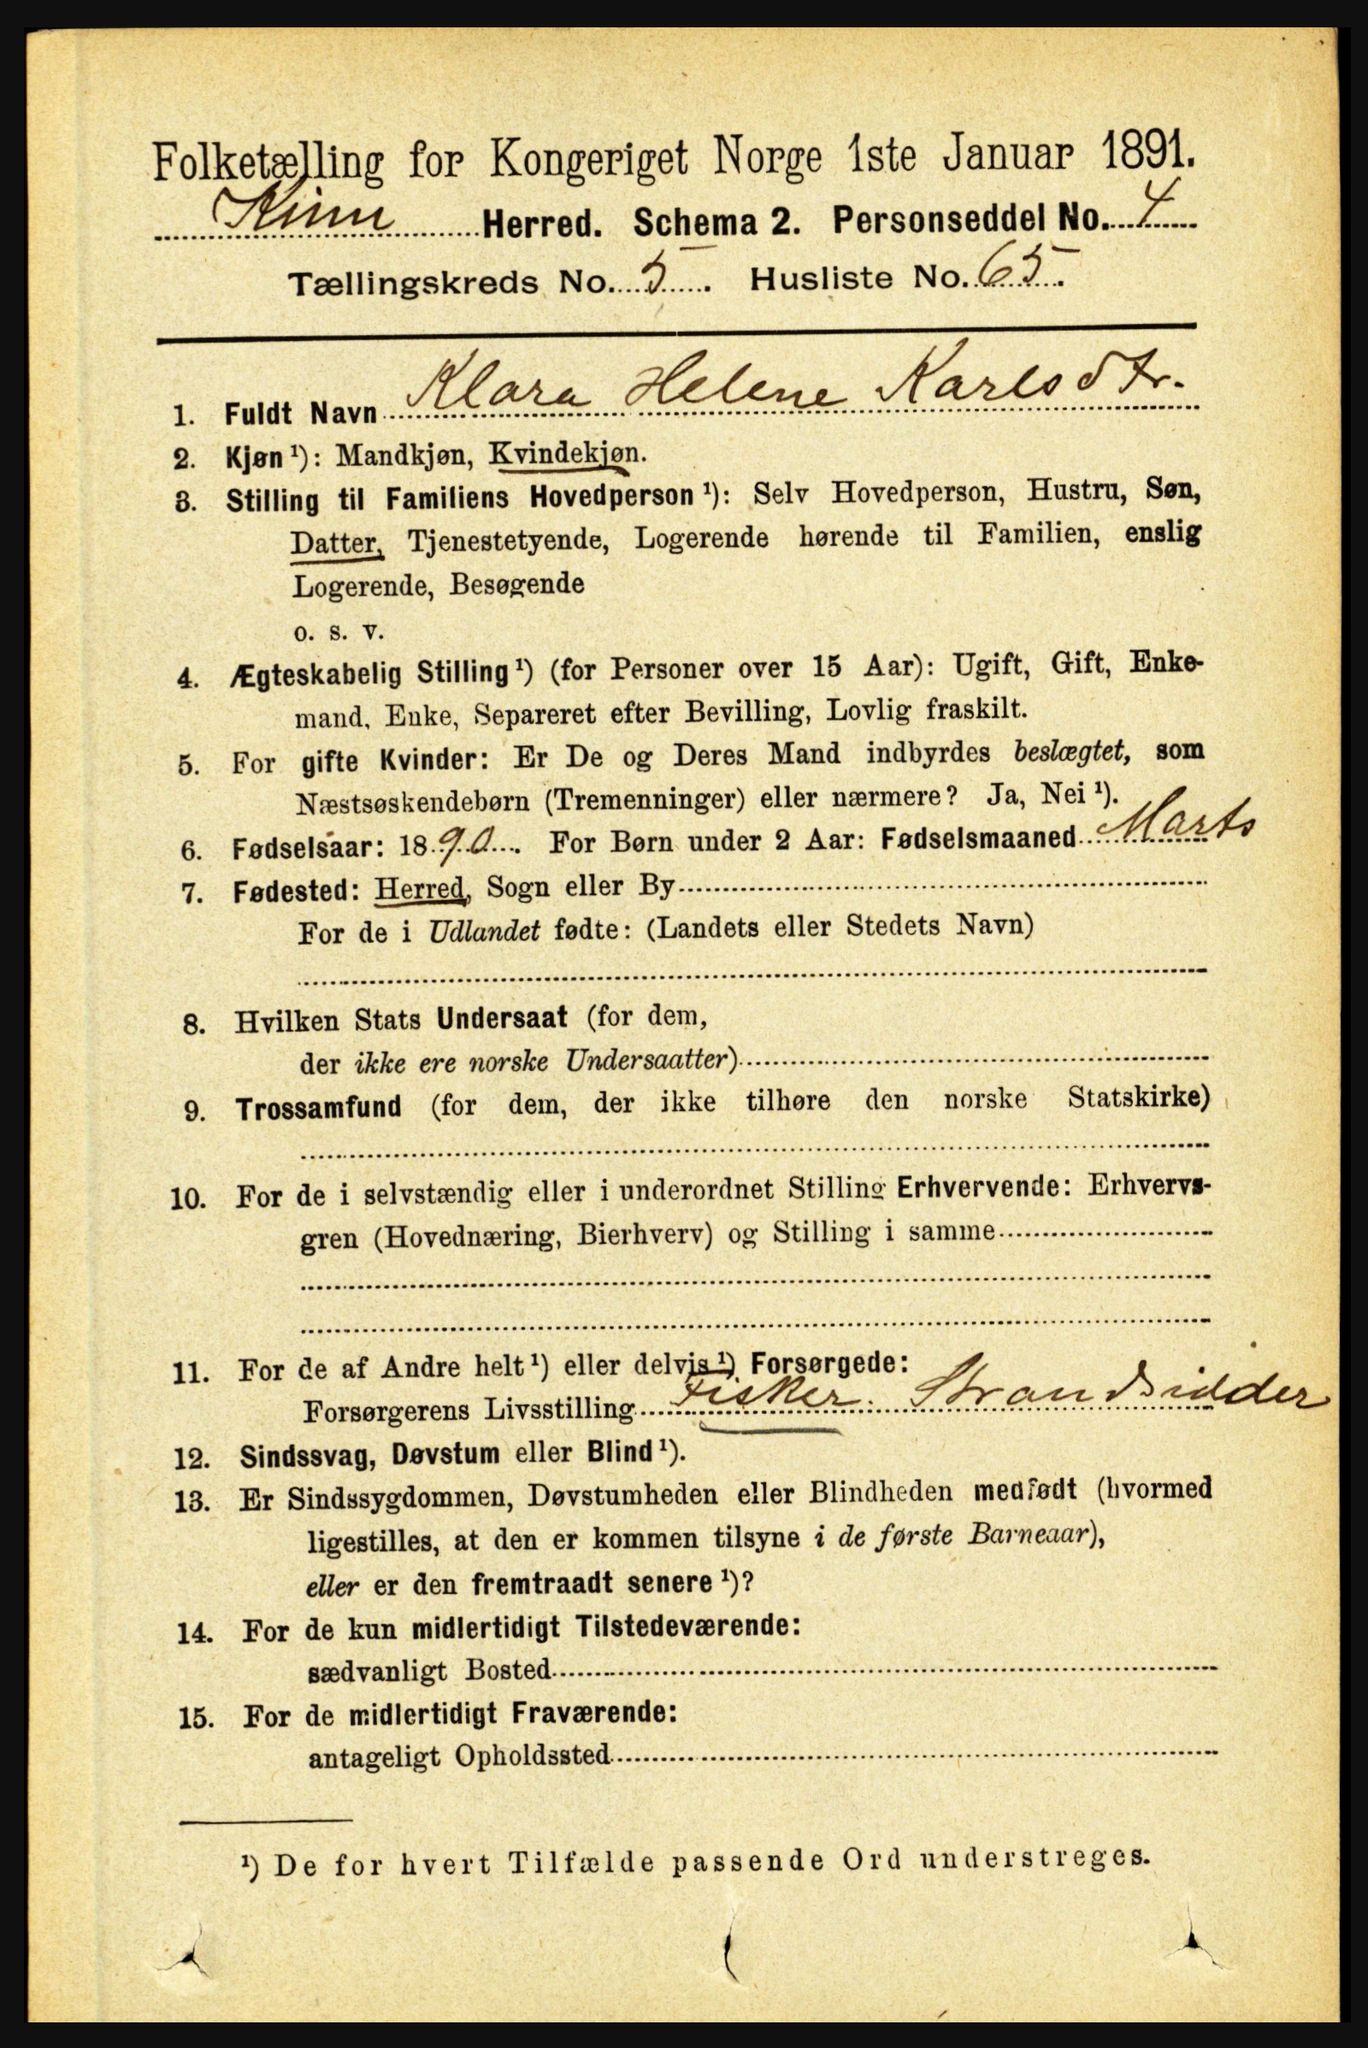 Folketælling for Kongeriget Norge 1ste Januar 1891.
Kinn Herred. Schema 2. Personseddel No. 4
Tællingskreds No. 5. Husliste No. 65.
1. Fuldt Navn Klara Helene Karlsdtr.
2. Kjøn ¹): Mandkjøn, Kvindekjøn.
3. Stilling til Familiens Hovedperson ¹): Selv Hovedperson, Hustru, Søn,
Datter, Tjenestetyende, Logerende hørende til Familien, enslig
Logerende, Besøgende
o. s. v.
4. Ægteskabelig Stilling ¹) (for Personer over 15 Aar): Ugift, Gift, Enke-
mand, Enke, Separeret efter Bevilling, Lovlig fraskilt.
5. For gifte Kvinder: Er De og Deres Mand indbyrdes beslægtet, som
Næstsøskendebørn (Tremenninger) eller nærmere? Ja, Nei ¹).
6. Fødselsaar: 1890. For Børn under 2 Aar: Fødselsmaaned Marts
7. Fødested: Herred, Sogn eller By
For de i Udlandet fødte: (Landets eller Stedets Navn)
8. Hvilken Stats Undersaat (for dem,
der ikke ere norske Undersaatter)
9. Trossamfund (for dem, der ikke tilhøre den norske Statskirke)
10. For de i selvstændig eller i underordnet Stilling Erhvervende: Erhvervs-
gren (Hovednæring, Bierhverv) og Stilling i samme
11. For de af Andre helt ¹) eller delvis ¹) Forsørgede:
Forsørgerens Livsstilling Fisker. Strandsidder
12. Sindssvag, Døvstum eller Blind ¹).
13. Er Sindssygdommen, Døvstumheden eller Blindheden medfødt (hvormed
ligestilles, at den er kommen tilsyne i de første Barneaar),
eller er den fremtraadt senere ¹)?
14. For de kun midlertidigt Tilstedeværende:
sædvanligt Bosted
15. For de midlertidigt Fraværende:
antageligt Opholdssted
¹) De for hvert Tilfælde passende Ord understreges.